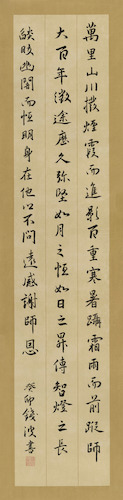 萬里山川撥煙霞而進影百重寒暑躡霜雨而前蹤師
大百年徵途歷久弥堅如月之恒如日之昇傳智燈之長
燄皎幽闇而恒明身在他以不問遠感謝師恩
癸卯錢波書